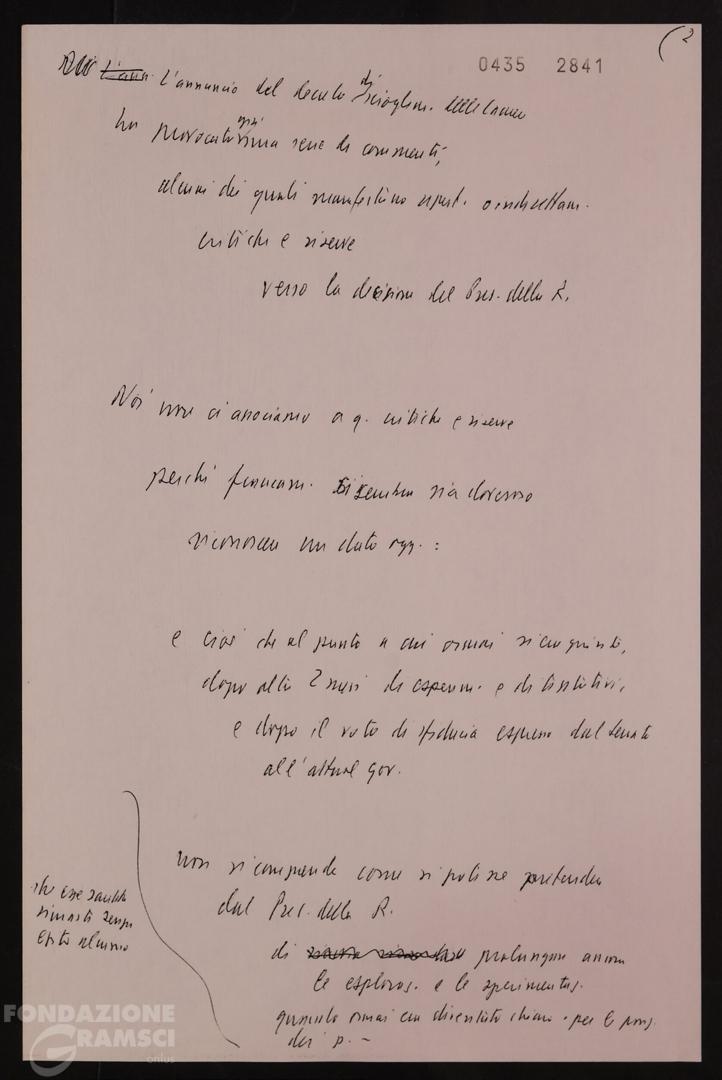 (2
0435 2841
L'annuncio del decreto di scioglim. delle Camere
ha provocato già una serie di commenti,
alcuni dei quali manifestano espert. o indirettam.
critiche e riserve
verso la decisione del Pres. della R.
Noi non ci associamo a q. critiche e riserve
perché francam. ci sembra sia doveroso
riconoscere un dato ogg. :
e cioè che al punto a cui ormai si era giunti,
dopo oltre 2 mesi di esperim. e di tentativi,
e dopo il voto di sfiducia espresso dal Senato
all'attual gov.
non si comprende come si potesse pretendere
dal Pres. della R.
di prolungare ancora
le esploraz. e le sperimentaz.
che esse sarebbero
rimaste senza
esito alcuno
quando ormai era diventato chiaro - per le pos.
dei p. -
FONDAZIONE
GRAMSCI
onlus